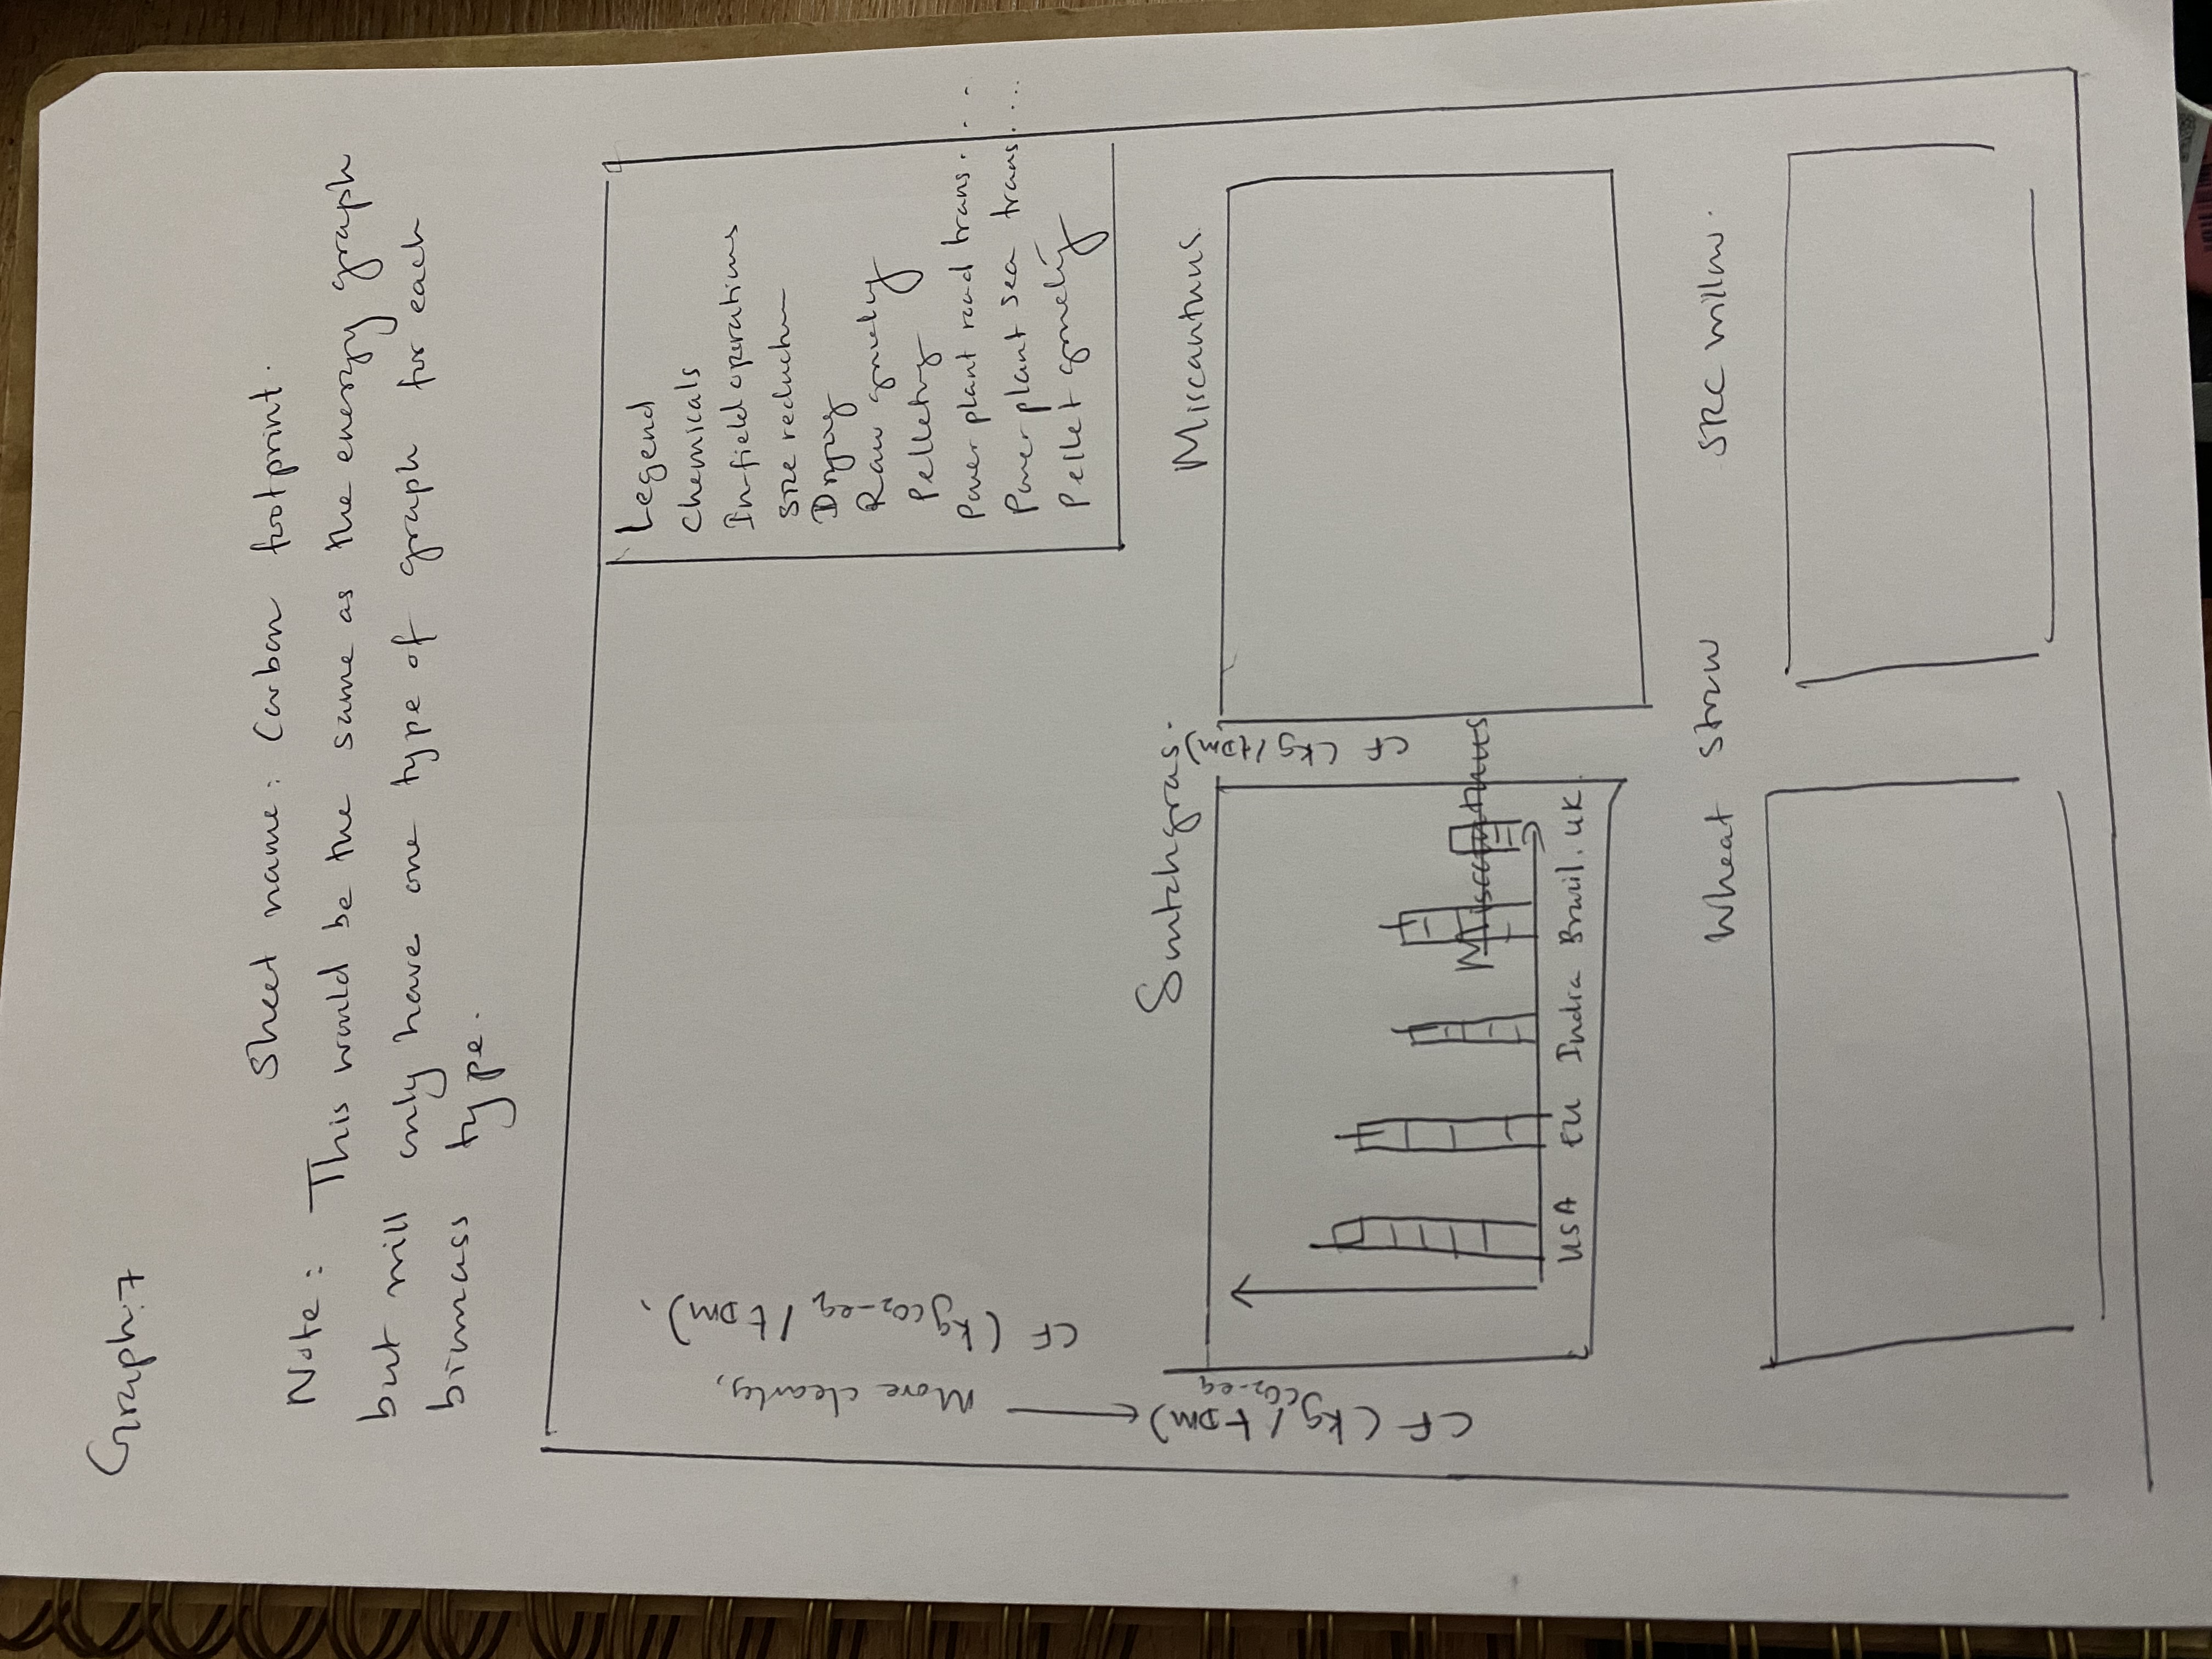 Graph:7
Sheet name: Carbon footprint.
Note: This would be the same as the energy graph
but will only have one type of graph for each
biomass type.
Legend
Chemicals
In-field operations
Size reduction
Drying
Raw grinding
Pelleting
Power plant road trans....
Power plant sea trans....
Pellet grinding
More clearly,
CF (kgCO2-eq / tDM).
CF (kgCO2-eq / tDM)
Switchgras.
Miscanthus
CF (kg / tDM)
Miscanthus
USA EU India Brazil. UK
Wheat Straw
SRC willow.